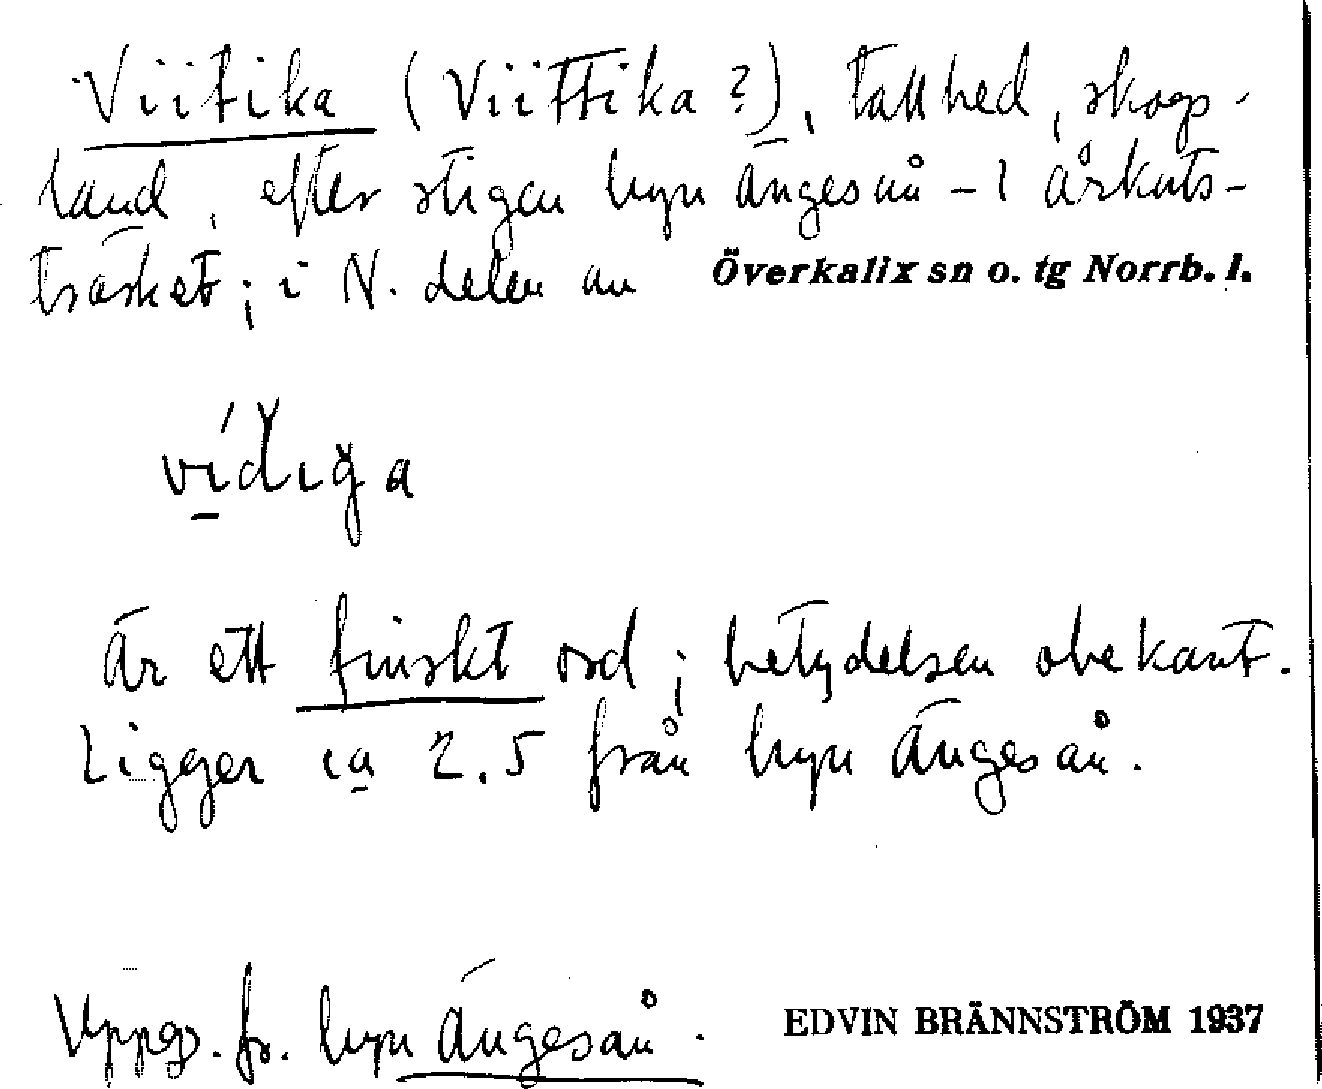 Viitika (Viittika?), tallhed, skogs-
land, efter stigen byn Ängesån – Lårkuts-
träsket; i N. delen av Överkalix sn o. tg Norrb. l.
vídiga
Är ett finskt ord; betydelsen obekant.
Ligger ca 2.5 från byn Ängesån.
Uppg. fr. byn Ängesån.
EDVIN BRÄNNSTRÖM 1937